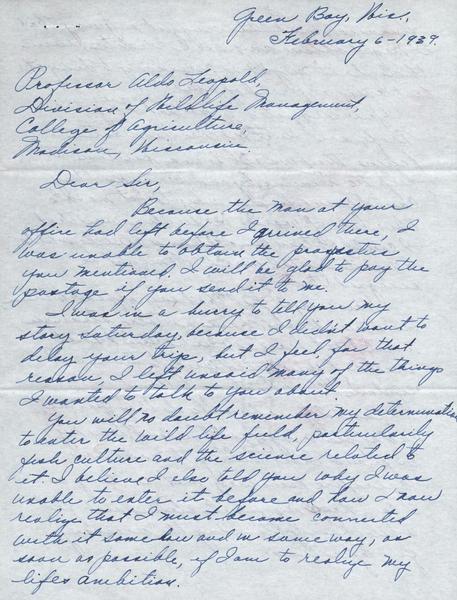 Green Bay, Wis.
February 6-1939.
Professor Aldo Leopold,
Division of Wildlife Management,
College of Agriculture,
Madison, Wisconsin.
Dear Sir,
Because the man at your
office had left before I arrived there, I
was unable to obtain the prospectus
you mentioned. I will be glad to pay the
postage if you send it to me.
I was in a hurry to tell you my
story Saturday, because I didn't want to
delay your trip, but I feel, for that
reason, I left unsaid many of the things
I wanted to talk to you about.
You will no doubt remember my determination
to enter the wild life field, particularily
fish culture and the science related to
it. I believe I also told you why I was
unable to enter it before and how I now
realize that I must become connected
with it somehow and in some way, as
soon as possible, if I am to realize my
lifes ambition.